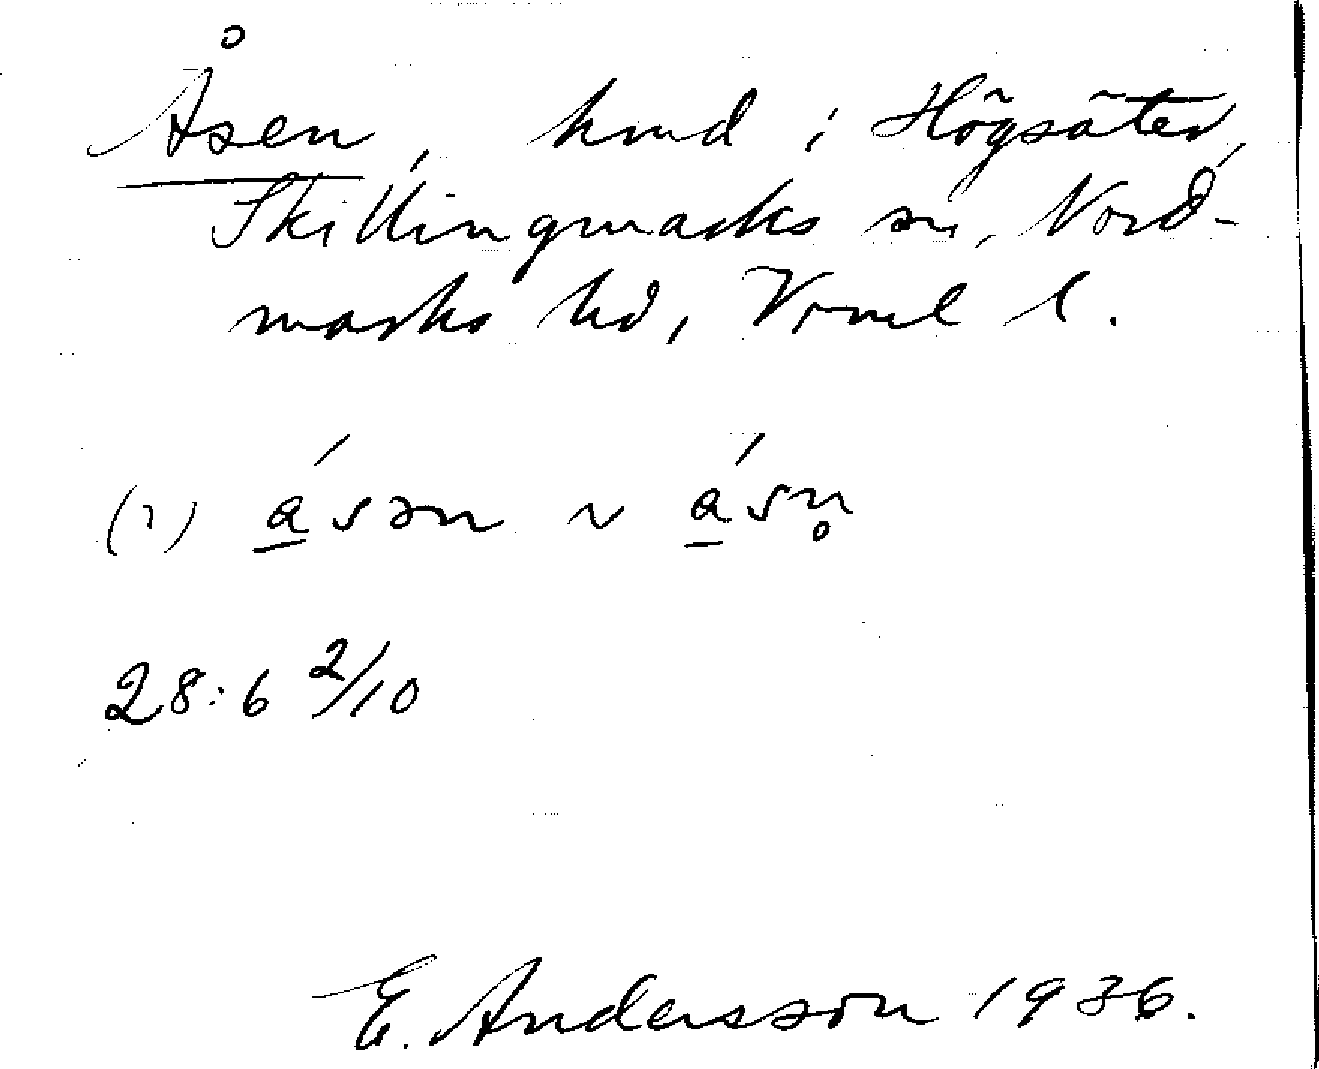 Åsen, hmd i Högsäter,
Skillingmarks sn, Nord-
marks hd, Vrml l.
(1) á̲sən ~ á̲sn̥
28:6 2/10
E. Andersson 1936.